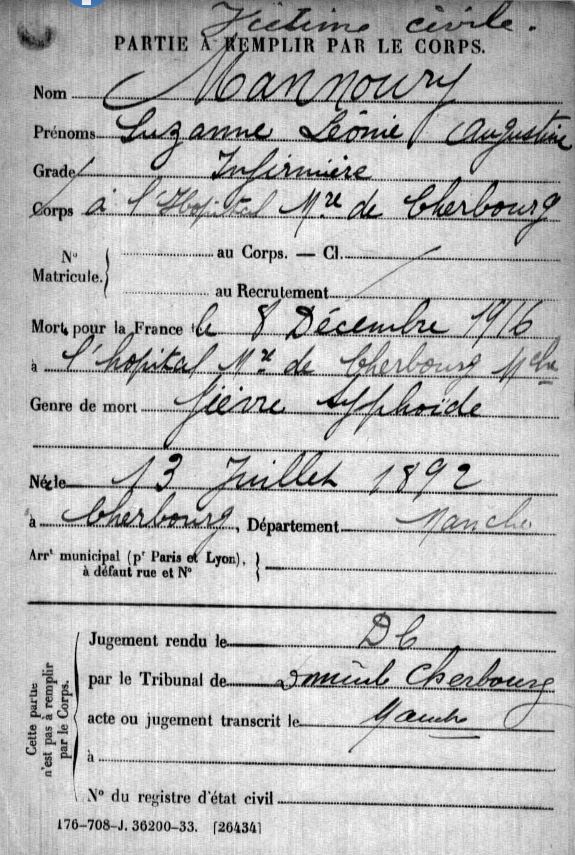 Victime civile.
PARTIE A REMPLIR PAR LE CORPS.
Nom Mannoury
Prénoms Suzanne Léonie Augustine
Grade Infirmière
Corps à l'Hopital Mre de Cherbourg
N° Matricule. { au Corps. — Cl.
au Recrutement
Mort pour la France le 8 Décembre 1916
à l'hopital Mre de Cherbourg Mche
Genre de mort fièvre typhoïde
Née le 13 Juillet 1892
à Cherbourg, Département Manche
Arrt municipal (pr Paris et Lyon), }
à défaut rue et N°
Cette partie n'est pas à remplir par le Corps.
Jugement rendu le DC
par le Tribunal de Domicile Cherbourg
acte ou jugement transcrit le Manche
à
N° du registre d'état civil
176-708-J. 36200-33. [26434]